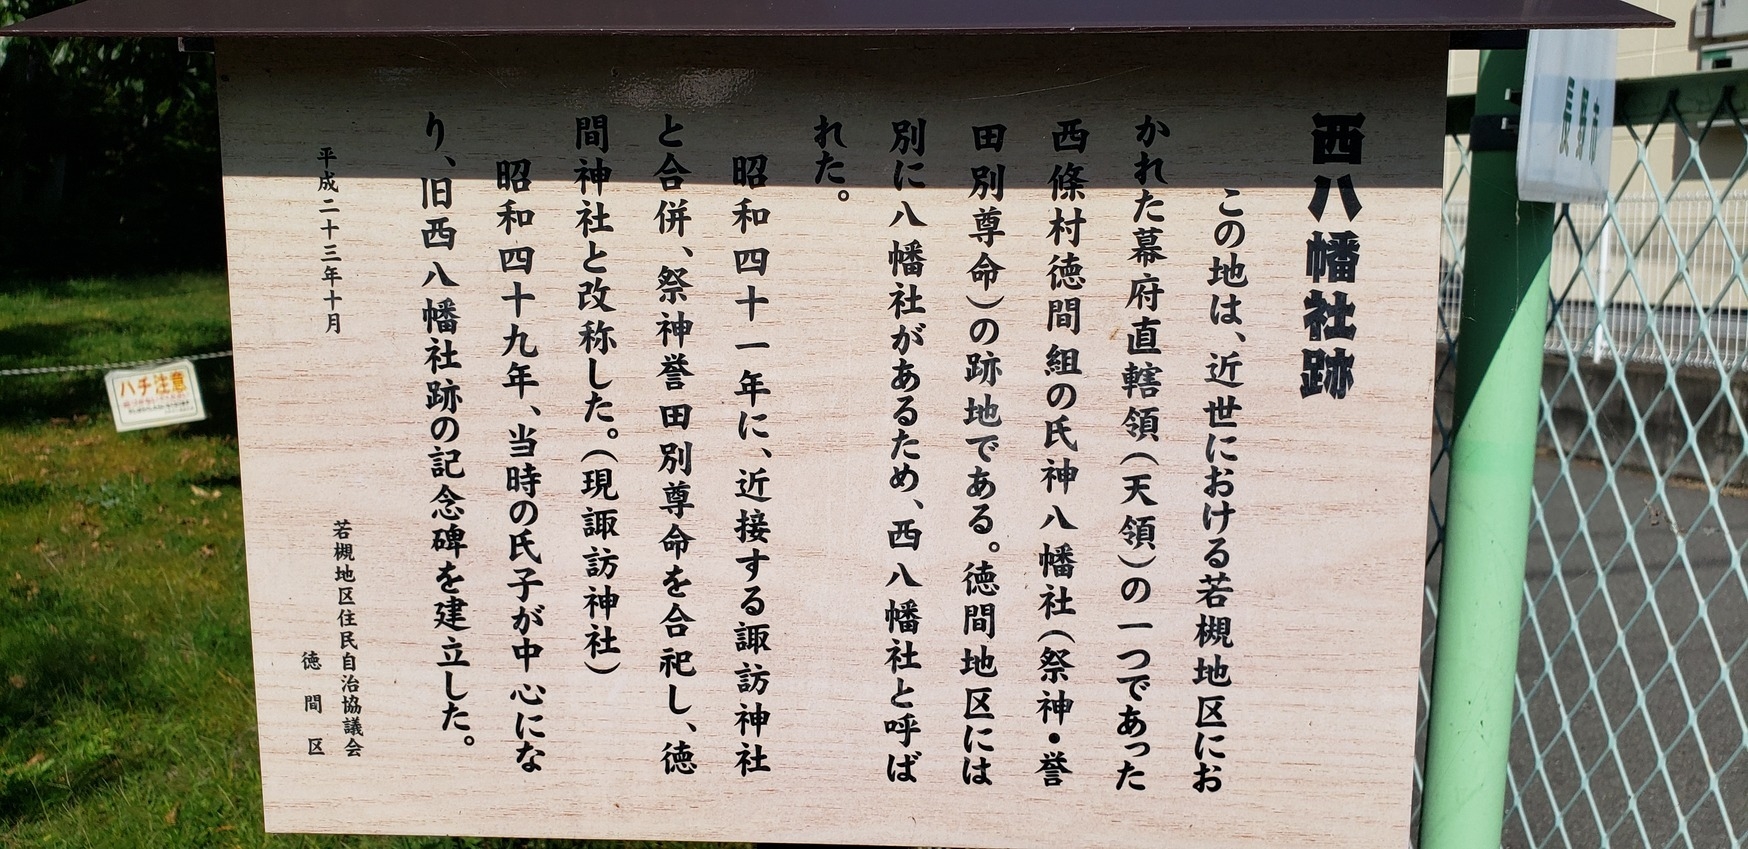 西八幡社跡
この地は、近世における若槻地区にお
かれた幕府直轄領（天領）の一つであった
西條村徳間組の氏神八幡社（祭神・誉
田別尊命）の跡地である。徳間地区には
別に八幡社があるため、西八幡社と呼ば
れた。
昭和四十一年に、近接する諏訪神社
と合併、祭神誉田別尊命を合祀し、徳
間神社と改称した。（現諏訪神社）
昭和四十九年、当時の氏子が中心にな
り、旧西八幡社跡の記念碑を建立した。
平成二十三年十月
若槻地区住民自治協議会
徳間区
長野市
ハチ注意